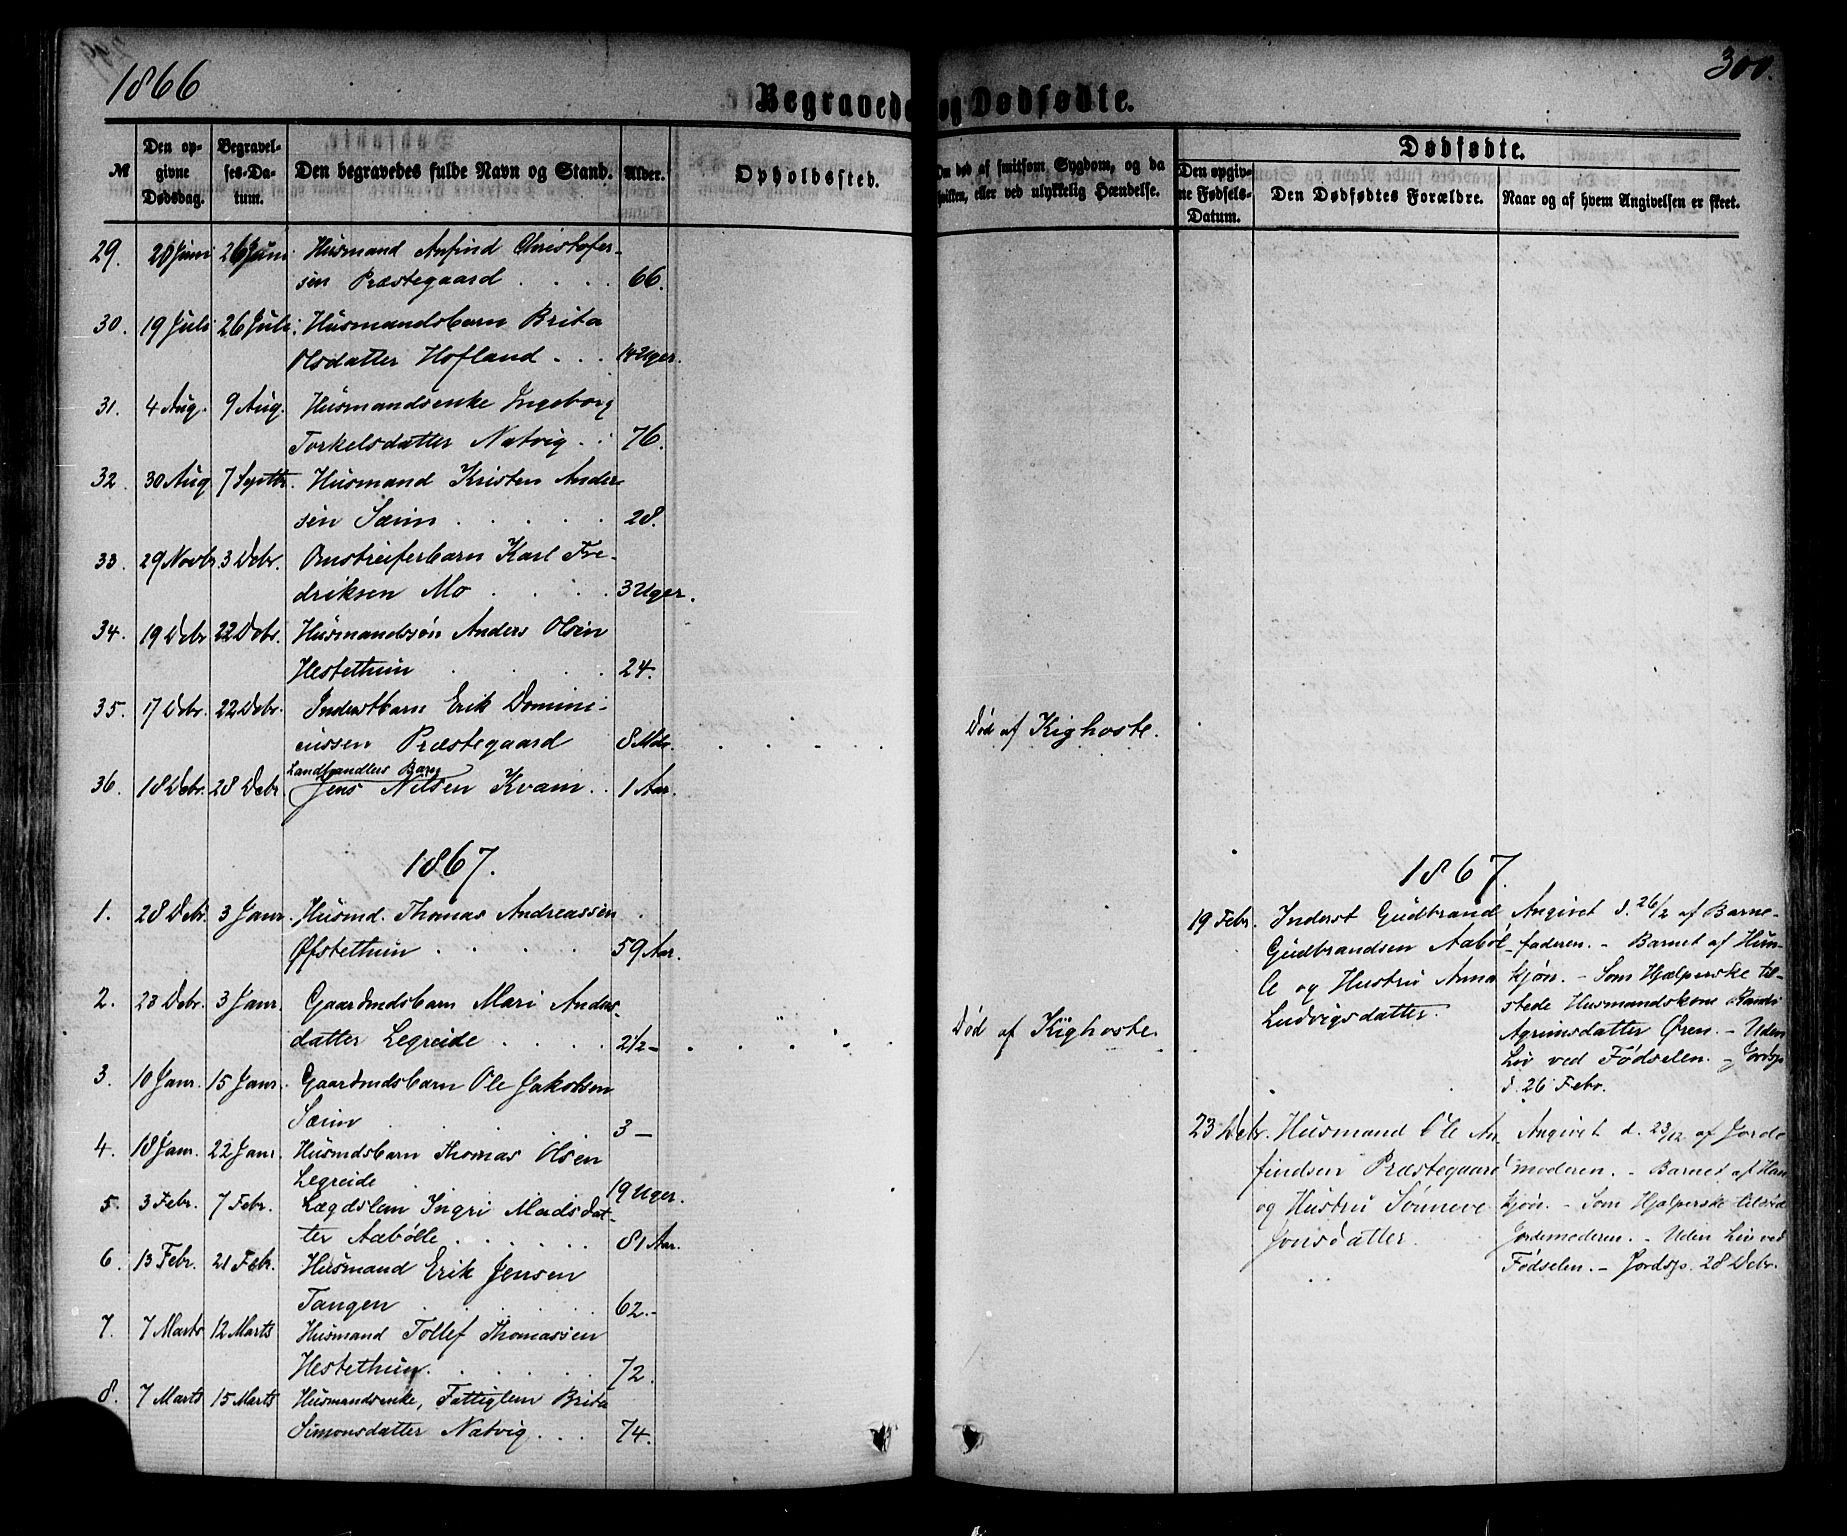 1866
300.
Begravede og Dødfødte.
№
Den opgivne Dødsdag.
Begravelses-Datum.
Den begravedes fulde Navn og Stand.
Alder.
Opholdssted.
død af smitsom Sygdom, og da hvilken, eller ved ulykkelig Hændelse.
Dødfødte.
Den opgivne Fødsels-Datum.
Den Dødfødtes Forældre.
Naar og af hvem Angivelsen er skeet.
29. 20 Juni 26 Juni Husmand Anfind Christofer-
sen Præstegaard . . . . 66.
30. 19 Juli 26 Juli Husmandsbarn Brita
Olsdatter Hofland . . . 14 Uger.
31. 4 Aug. 9 Aug. Husmandsenke Ingeborg
Torkelsdatter Natvig . . 76.
32. 30 Aug 7 Septbr. Husmand Kristen Ander-
sen Sæim . . . . . 28.
33. 29 Novbr 3 Debr. Omstreiferbarn Karl Fre-
driksen Mo . . . . 3 Uger.
34. 19 Debr 22 Debr. Husmandssøn Anders Olsen
Hestethun . . . . 24.
35. 17 Debr. 22 Debr. Inderstbarn Erik Domini-
cussen Præstegaard 8 Mdr. . . . . . Død af Kighoste.
Landhandlers Barn
36. 18 Debr. 28 Debr Jens Nilsen Kvam . . 1 Aar.
1867.
1. 28 Debr. 3 Janr. Husmd. Thomas Andreassen
Øfstethun . . . . . 59 Aar.
2. 23 Debr. 3 Janr. Gaardmdsbarn Mari Anders-
datter Legreide . . . . 2 1/2 – . . . . . Død af Kighoste.
3. 10 Janr. 15 Janr. Gaardmdsbarn Ole Jakobsen
Sæim . . . . . 3 –
4. 18 Janr. 22 Janr. Husmdsbarn Thomas Olsen
Legreide . . . . 19 Uger.
5. 3 Febr. 7 Febr. Lægdslem Ingri Madsdat-
ter Aabølle . . . . . . 81 Aar.
6. 13 Febr. 21 Febr. Husmand Erik Jensen
Tangen . . . . . . 62. –
7. 7 Marts 12 Marts Husmand Tollef Thomassen
Hestethun . . . . . 72.
8. 7 Marts 15 Marts Husmandsenke, Fattiglem Brita
Simonsdatter Natvig . . . 74.
1867.
19 Febr. Inderst Gudbrand
Gudbrandsen Aaböl-
le og Hustru Anna
Ludvigsdatter.
Angivet d. 26/2 af Barne-
faderen. – Barnet af Hun-
kjøn. – Som Hjælperske til-
stede Husmandskone Randi
Agrimsdatter Øren. – Uden
Liv ved Fødselen. – Jordsp.
d. 26 Febr.
23 Debr. Husmand Ole An-
findsen Præstegaard
og Hustru Sønneve
Jonsdatter.
Angivet d. 23/12 af Jorde-
moderen. – Barnet af Han-
kjøn. – Som Hjælperske tilstede
Jordemoderen. – Uden Liv ved
Fødselen. – Jordsp. 28 Debr.